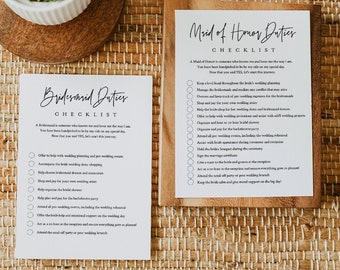 Bridesmaid Duties
CHECKLIST
A Bridesmaid is someone who knows me and loves me the way I am.
You have been handpicked to be by my side on my special day.
Now that you said YES, let's start this journey.
Offer to help with wedding planning and pre-wedding events
Accompany the bride while dress shopping
Help choose bridesmaid dresses and accessories
Shop and pay for your own wedding attire
Help organize the bridal shower
Help plan and pay for the bachelorette party
Attend all pre-wedding events, including the wedding rehearsal
Offer the bride help and emotional support on the wedding day
Act as a co-host in the reception and ensure everything goes as planned
Attend the send-off party or post wedding brunch
Maid of Honor Duties
CHECKLIST
A Maid of Honor is someone who knows me and loves me the way I am.
You have been handpicked to be by my side on my special day.
Now that you said YES, let's start this journey.
Keep a level head throughout the bridal planning
Manage the bridesmaids and mediate any conflict that may arise
Oversee and keep track of pre-wedding expenses for the bridesmaids
Shop and pay for your own wedding attire
Help the bride shop for her bridal dress and bridesmaid dresses
Offer to help with wedding invitations and assist with other wedding projects
Organize and pay for the bridal shower
Organize and pay for the bachelorette party
Attend all pre-wedding events, including the wedding rehearsal
Assist with bride appearance during ceremony and reception
Hold the brides bouquet during the ceremony
Sign the marriage certificate
Give a toast to the bride and groom at the reception
Act as a co-host in the reception and ensure everything goes as planned
Attend the send-off party or post-wedding brunch
Keep the bride calm and give support on the big day!